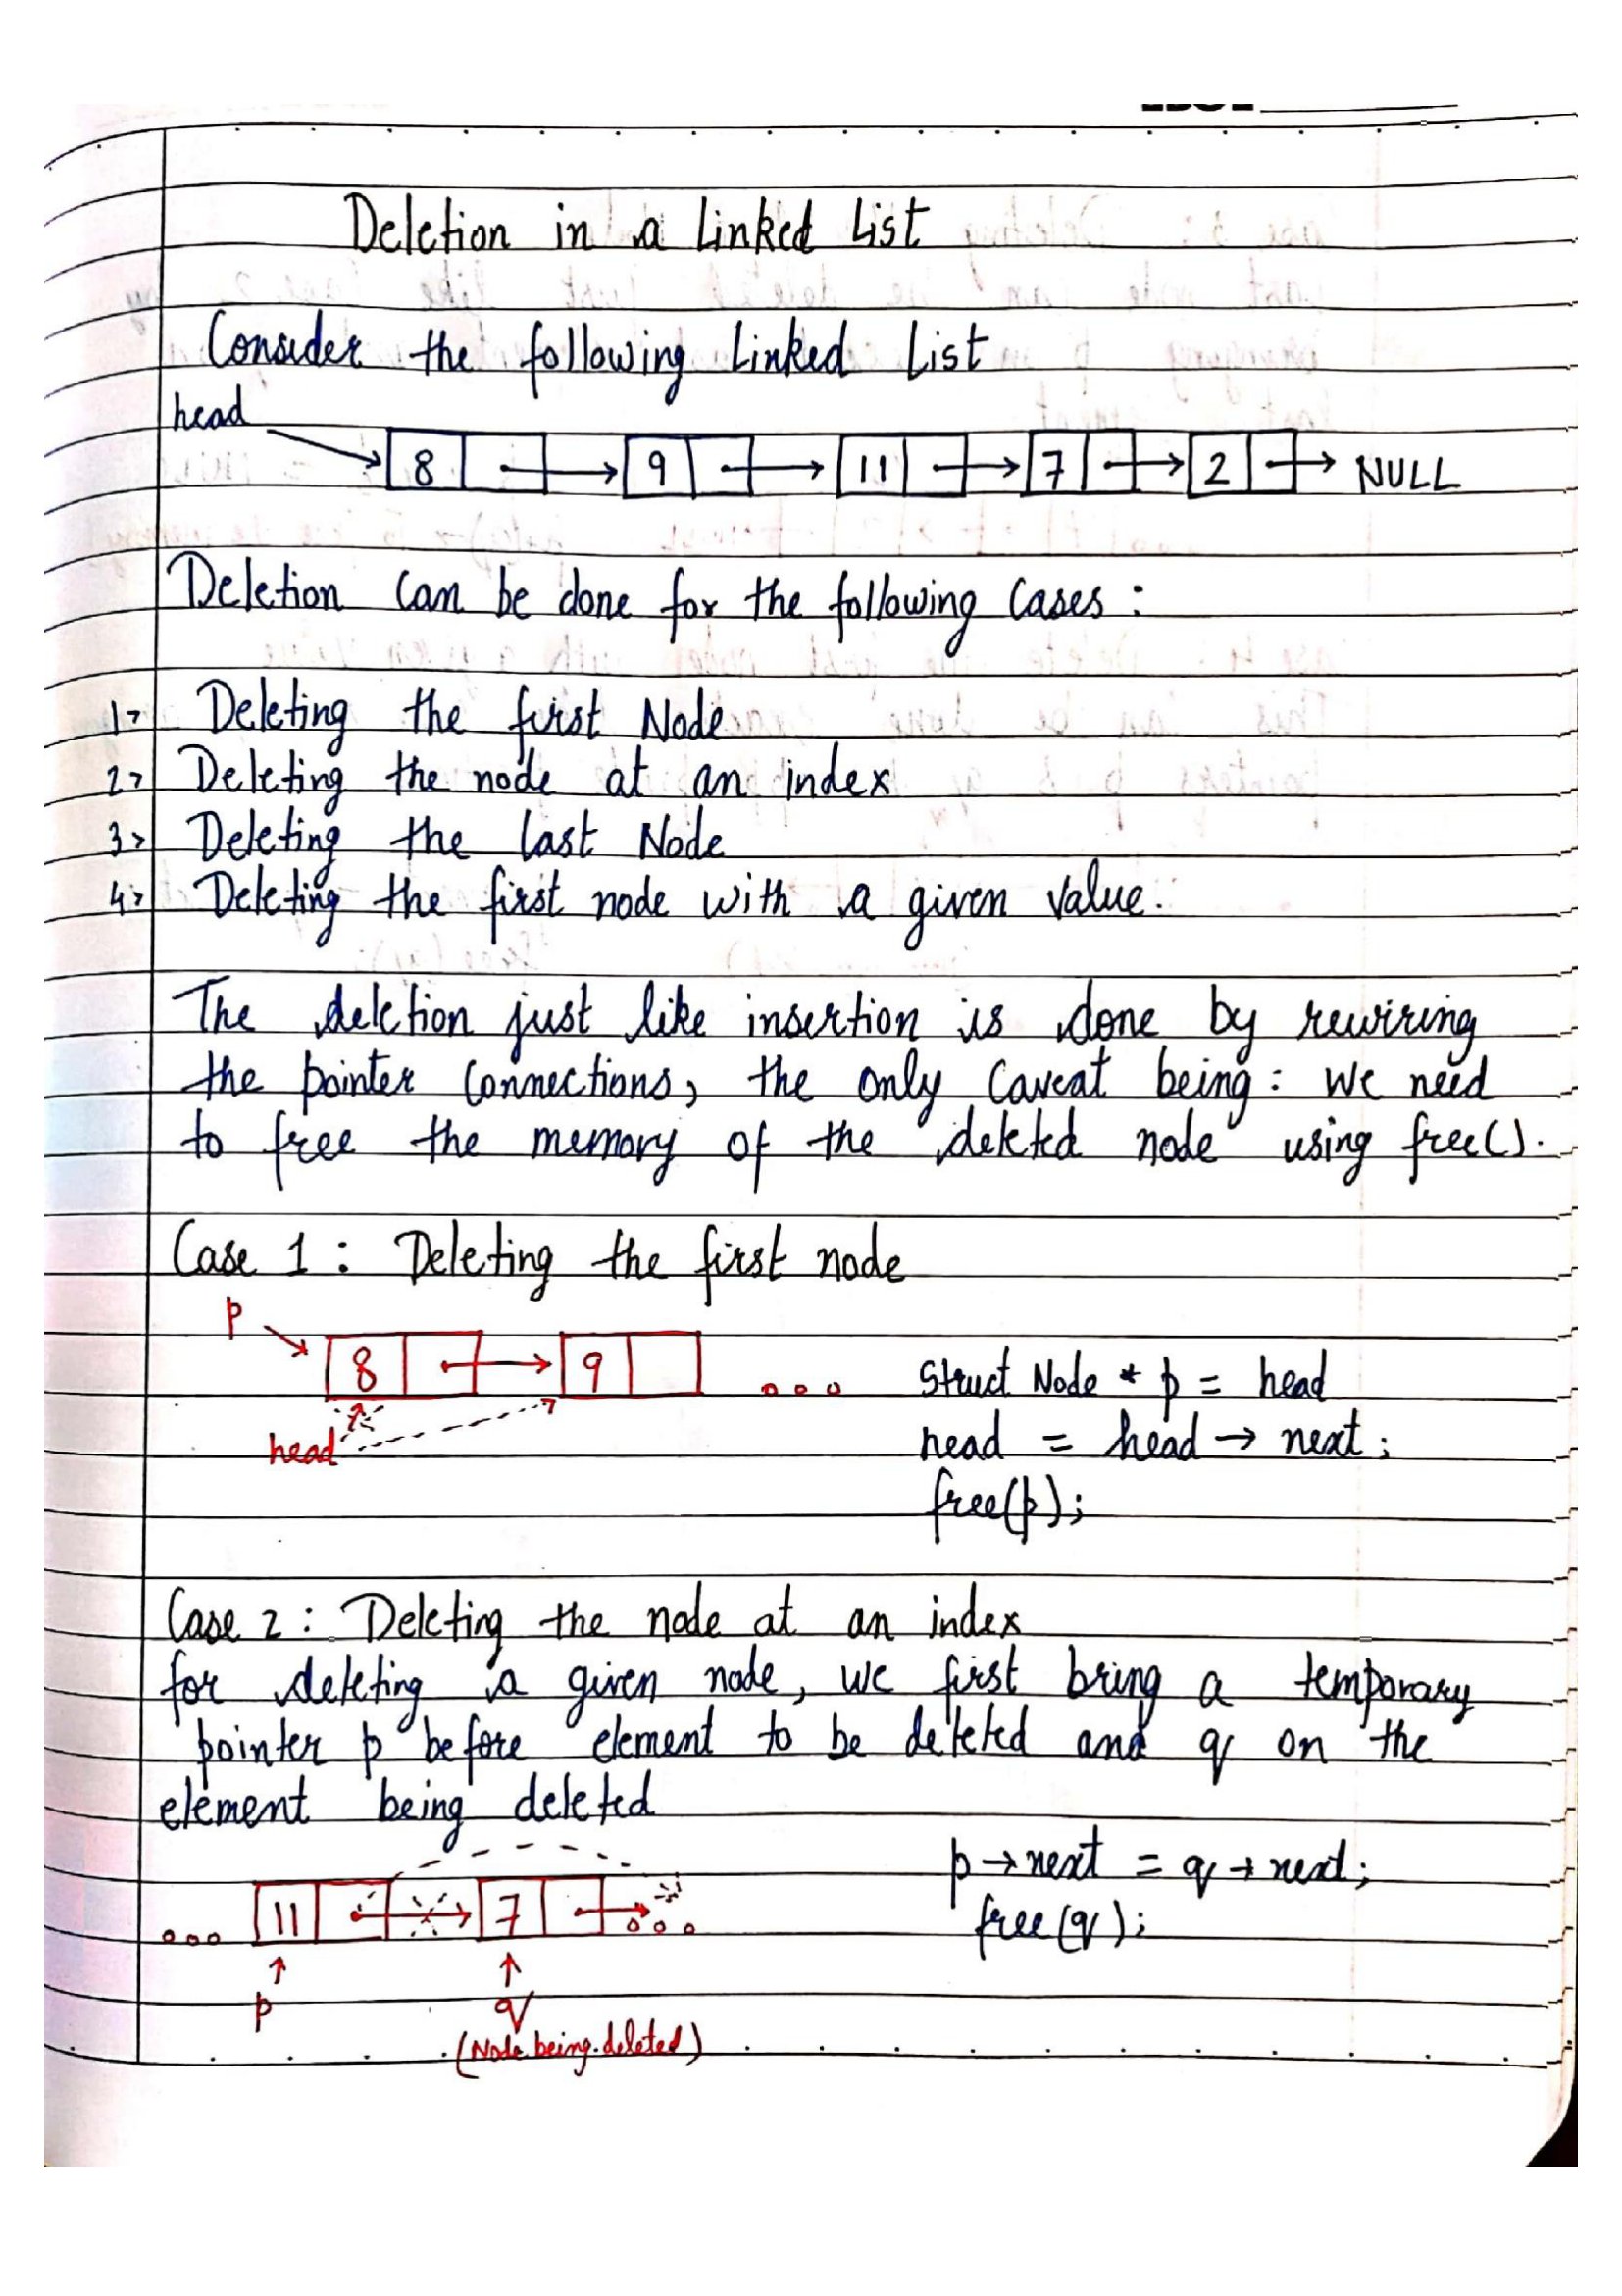 Deletion in a Linked List
Consider the following Linked List
head
8 9 11 7 2 NULL
Deletion can be done for the following cases :
1> Deleting the first Node
2> Deleting the node at an index
3> Deleting the last Node
4> Deleting the first node with a given value.
The deletion just like insertion is done by rewiring
the pointer connections, the only caveat being : we need
to free the memory of the deleted node using free().
Case 1 : Deleting the first node
p
8 9 ...
head
Struct Node * p = head
head = head → next ;
free(p);
Case 2 : Deleting the node at an index
for deleting a given node, we first bring a temporary
pointer p before element to be deleted and q on the
element being deleted
... 11 7 ...
p q
(Node being deleted)
p → next = q → next;
free(q);